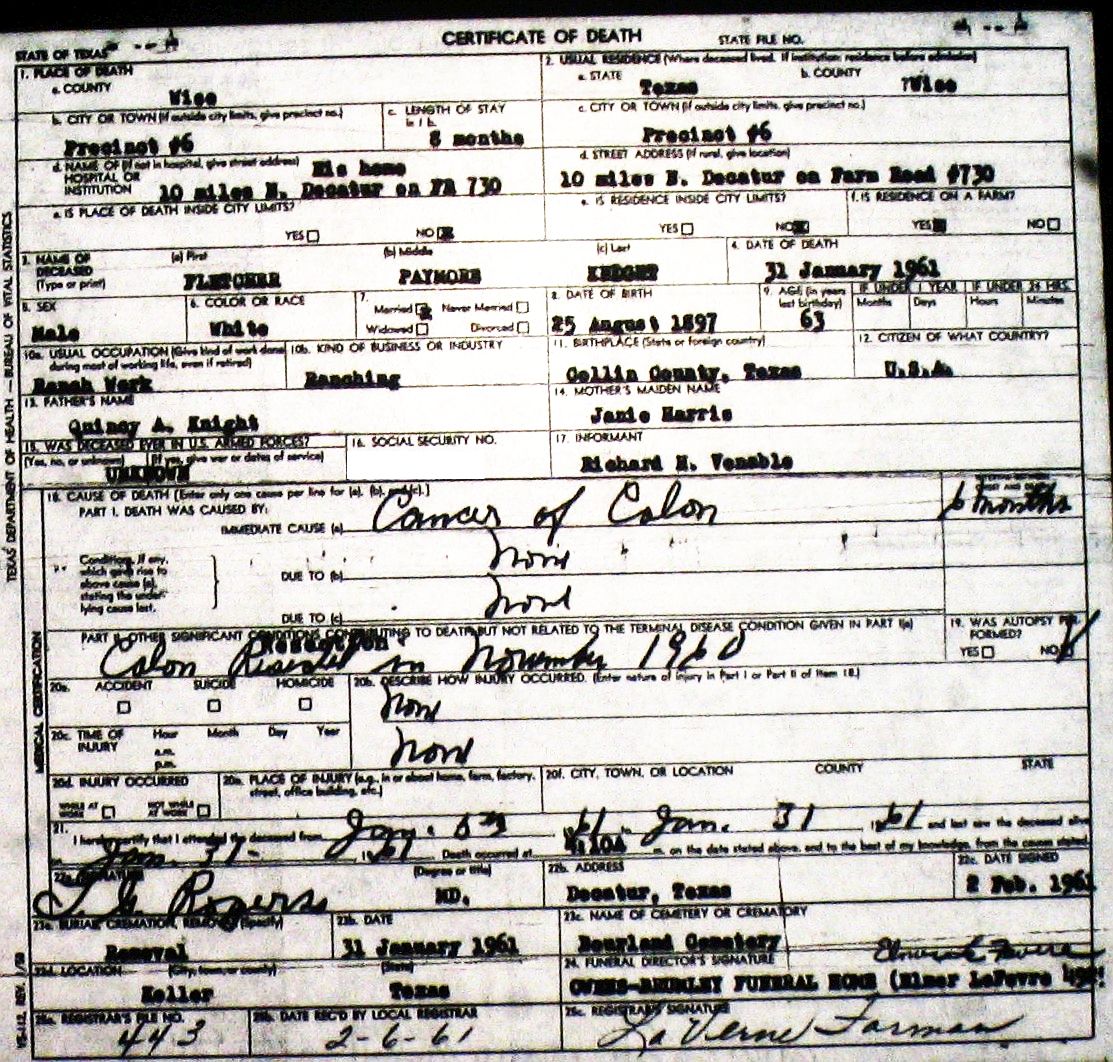 CERTIFICATE OF DEATH
STATE OF TEXAS
STATE FILE NO.
TEXAS DEPARTMENT OF HEALTH — BUREAU OF VITAL STATISTICS
1. PLACE OF DEATH
a. COUNTY
Wise
b. CITY OR TOWN (If outside city limits, give precinct no.)
Precinct #6
c. LENGTH OF STAY
in 1 b.
8 months
d. NAME OF (If not in hospital, give street address)
HOSPITAL OR
INSTITUTION
His home
10 miles N. Decatur on FM 730
e. IS PLACE OF DEATH INSIDE CITY LIMITS?
YES NO
2. USUAL RESIDENCE (Where deceased lived. If institution: residence before admission)
a. STATE
Texas
b. COUNTY
Wise
c. CITY OR TOWN (If outside city limits, give precinct no.)
Precinct #6
d. STREET ADDRESS (If rural, give location)
10 miles N. Decatur on Farm Road #730
e. IS RESIDENCE INSIDE CITY LIMITS?
YES NO
f. IS RESIDENCE ON A FARM?
YES NO
3. NAME OF
DECEASED
(Type or print)
(a) First
FLETCHER
(b) Middle
PAYMORE
(c) Last
4. DATE OF DEATH
31 January 1961
5. SEX
Male
6. COLOR OR RACE
White
7.
Married Never Married
Widowed Divorced
8. DATE OF BIRTH
25 August 1897
9. AGE (In years
last birthday)
63
IF UNDER 1 YEAR
Months Days
IF UNDER 24 HRS.
Hours Minutes
10a. USUAL OCCUPATION (Give kind of work done
during most of working life, even if retired)
Ranch Work
10b. KIND OF BUSINESS OR INDUSTRY
Ranching
11. BIRTHPLACE (State or foreign country)
Collin County, Texas
12. CITIZEN OF WHAT COUNTRY?
U.S.A.
13. FATHER'S NAME
Quincy A. Knight
14. MOTHER'S MAIDEN NAME
Janie Harris
15. WAS DECEASED EVER IN U.S. ARMED FORCES?
(Yes, no, or unknown) (If yes, give war or dates of service)
UNKNOWN
16. SOCIAL SECURITY NO.
17. INFORMANT
Richard H. Venable
MEDICAL CERTIFICATION
18. CAUSE OF DEATH [Enter only one cause per line for (a), (b), and (c).]
PART I. DEATH WAS CAUSED BY:
IMMEDIATE CAUSE (a) Cancer of Colon
6 months
Conditions, if any,
which gave rise to
above cause (a),
stating the under-
lying cause last.
DUE TO (b) None
DUE TO (c) None
PART II. OTHER SIGNIFICANT CONDITIONS CONTRIBUTING TO DEATH BUT NOT RELATED TO THE TERMINAL DISEASE CONDITION GIVEN IN PART I(a)
Resection
Colon in November 1960
19. WAS AUTOPSY PER-
FORMED?
YES NO
20a. ACCIDENT SUICIDE HOMICIDE
20b. DESCRIBE HOW INJURY OCCURRED. (Enter nature of injury in Part I or Part II of Item 18.)
None
20c. TIME OF
INJURY
Hour Month Day Year
a.m.
p.m.
None
20d. INJURY OCCURRED
WHILE AT
WORK
NOT WHILE
AT WORK
20e. PLACE OF INJURY (e.g., in or about home, farm, factory,
street, office building, etc.)
20f. CITY, TOWN, OR LOCATION COUNTY STATE
21.
I hereby certify that I attended the deceased from Jan. 1961 to Jan. 31 1961 and last saw the deceased alive
on Jan. 31 1961 Death occurred at 4:10A m. on the date stated above, and to the best of my knowledge, from the causes stated.
22a. SIGNATURE
(Degree or title)
Rogers MD.
22b. ADDRESS
Decatur, Texas
22c. DATE SIGNED
2 Feb. 1961
23a. BURIAL, CREMATION, REMOVAL (Specify)
Removal
23b. DATE
31 January 1961
23c. NAME OF CEMETERY OR CREMATORY
Bourland Cemetery
23d. LOCATION (City, town, or county) (State)
Keller Texas
24. FUNERAL DIRECTOR'S SIGNATURE
OWENS-BRUMLEY FUNERAL HOME (Elmer LeFevre
25a. REGISTRAR'S FILE NO.
443
25b. DATE REC'D BY LOCAL REGISTRAR
2-6-61
25c. REGISTRAR'S SIGNATURE
La Verne Forman